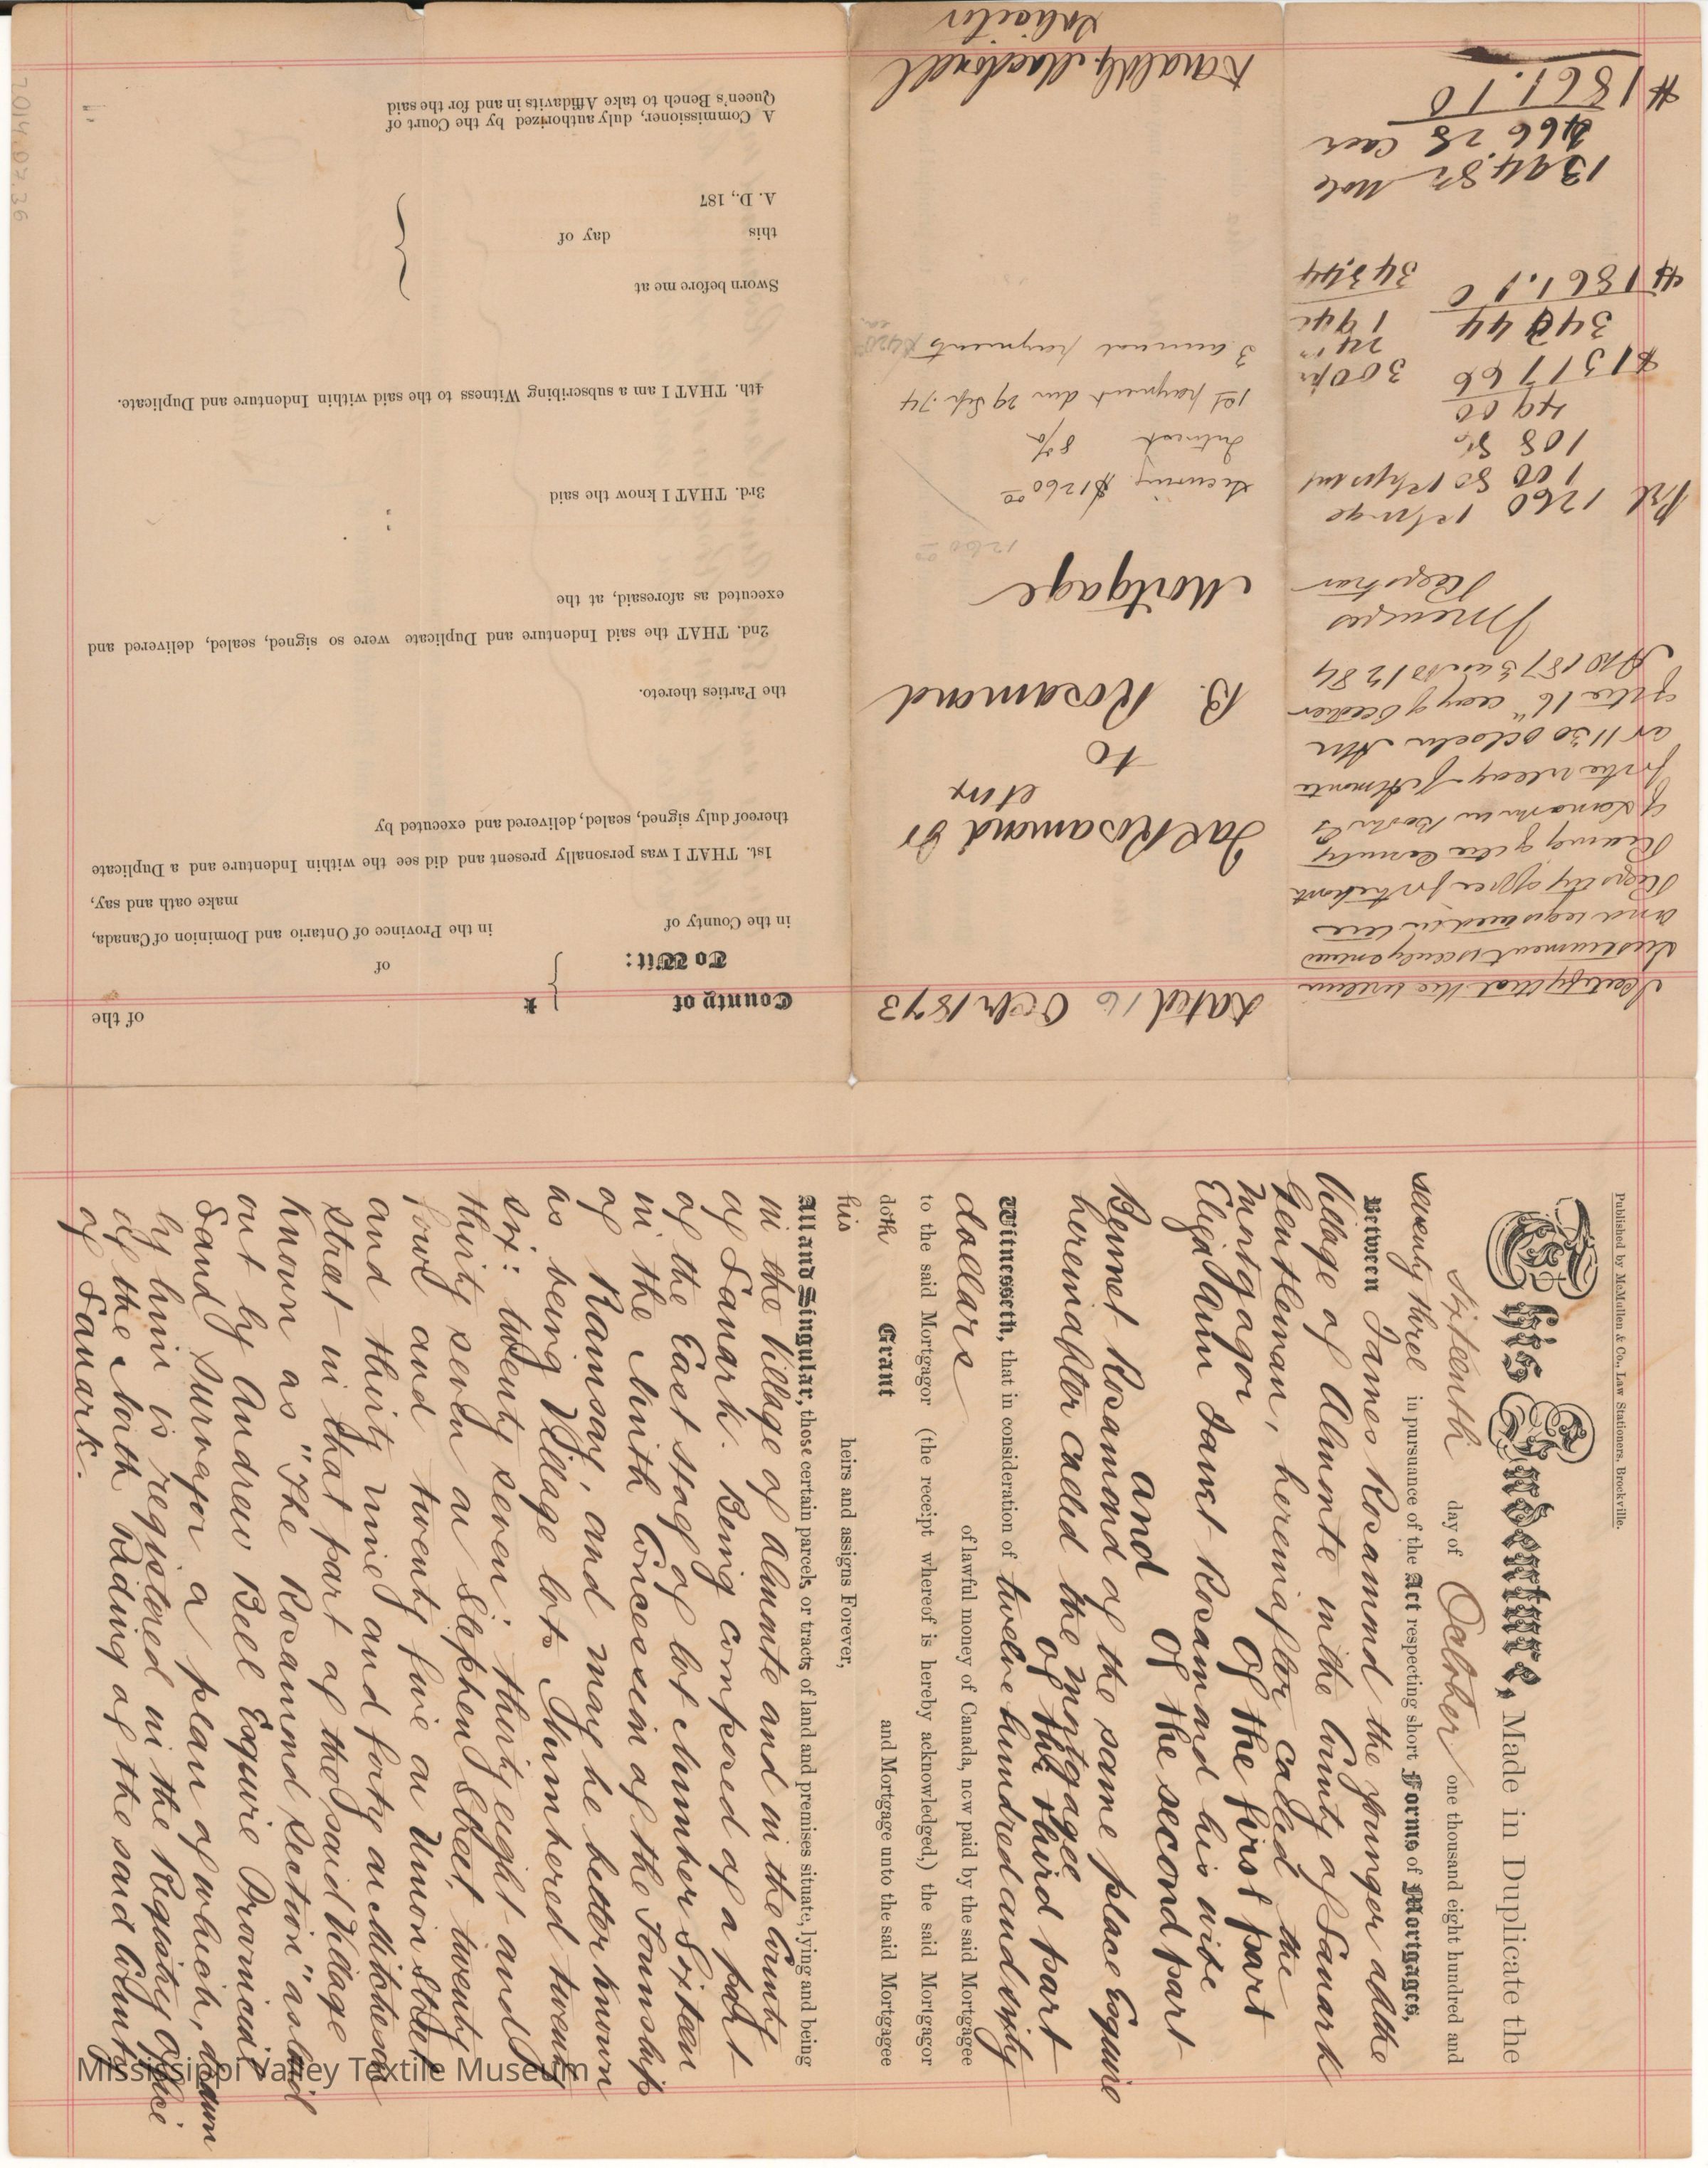 Published by McMullen & Co., Law Stationers, Brockville.
This Indenture, Made in Duplicate the
Sixteenth day of October one thousand eight hundred and
seventy three in pursuance of the Act respecting short Forms of Mortgages,
Between James Rosamond the younger of the
Village of Almonte in the County of Lanark
Gentleman, hereinafter called the
Mortgagor Of the first part
Eliza Jane Rosamond his wife
Of the second part
and
Bennet Rosamond of the same place Esquire
hereinafter called the Mortgagee
Of the third part
Witnesseth, that in consideration of twelve hundred and sixty
dollars of lawful money of Canada, now paid by the said Mortgagee
to the said Mortgagor (the receipt whereof is hereby acknowledged,) the said Mortgagor
doth Grant and Mortgage unto the said Mortgagee
his heirs and assigns Forever,
All and Singular, those certain parcels or tracts of land and premises situate, lying and being
in the Village of Almonte and in the County
of Lanark. Being composed of a part
of the East half of lot Number Sixteen
in the Ninth Concession of the Township
of Ramsay, and may be better known
as being Village lots Numbered twenty
six: twenty seven: thirty eight and
thirty seven on Stephen Street, twenty
four and twenty five on Union Street
and thirty nine and forty on Mitcheson
street in that part of the said Village
known as "The Rosamond section" as laid
out by Andrew Bell Esquire Provincial
Land Surveyor a plan of which, drawn
by him is registered in the Registry Office
of the North Riding of the said County
of Lanark.
I certify that the within
Instrument is duly entered
and registered in the
Registry office for the North
Riding of the County
of Lanark in Book
for the village of Almonte
at 11 30 oclock AM
of the 16th day of October
AD 1873 as No 1284
Menzies
Registrar
1260 mtge
100 80
108
49 00
$1517 66 300
343 44
$1861.10 343.44
1394.82 Note
466 28 Cash
#1861.10
Dated 16 Octr 1873
Jas Rosamond Jr
et ux
to
B. Rosamond
Mortgage
1260 00
Securing $1260 00
Interest 8%
1st payment due 29 Sep. 74
3 annual payments $420 ea
Macdonell
Solicitor
County of
To Wit:
of the
of
in the County of in the Province of Ontario and Dominion of Canada,
make oath and say,
1st. THAT I was personally present and did see the within Indenture and a Duplicate
thereof duly signed, sealed, delivered and executed by
the Parties thereto.
2nd. THAT the said Indenture and Duplicate were so signed, sealed, delivered and
executed as aforesaid, at the
3rd. THAT I know the said
4th. THAT I am a subscribing Witness to the said within Indenture and Duplicate.
Sworn before me at
this day of
A. D., 187
A Commissioner, duly authorized by the Court of
Queen's Bench to take Affidavits in and for the said
2014.02.36
Mississippi Valley Textile Museum